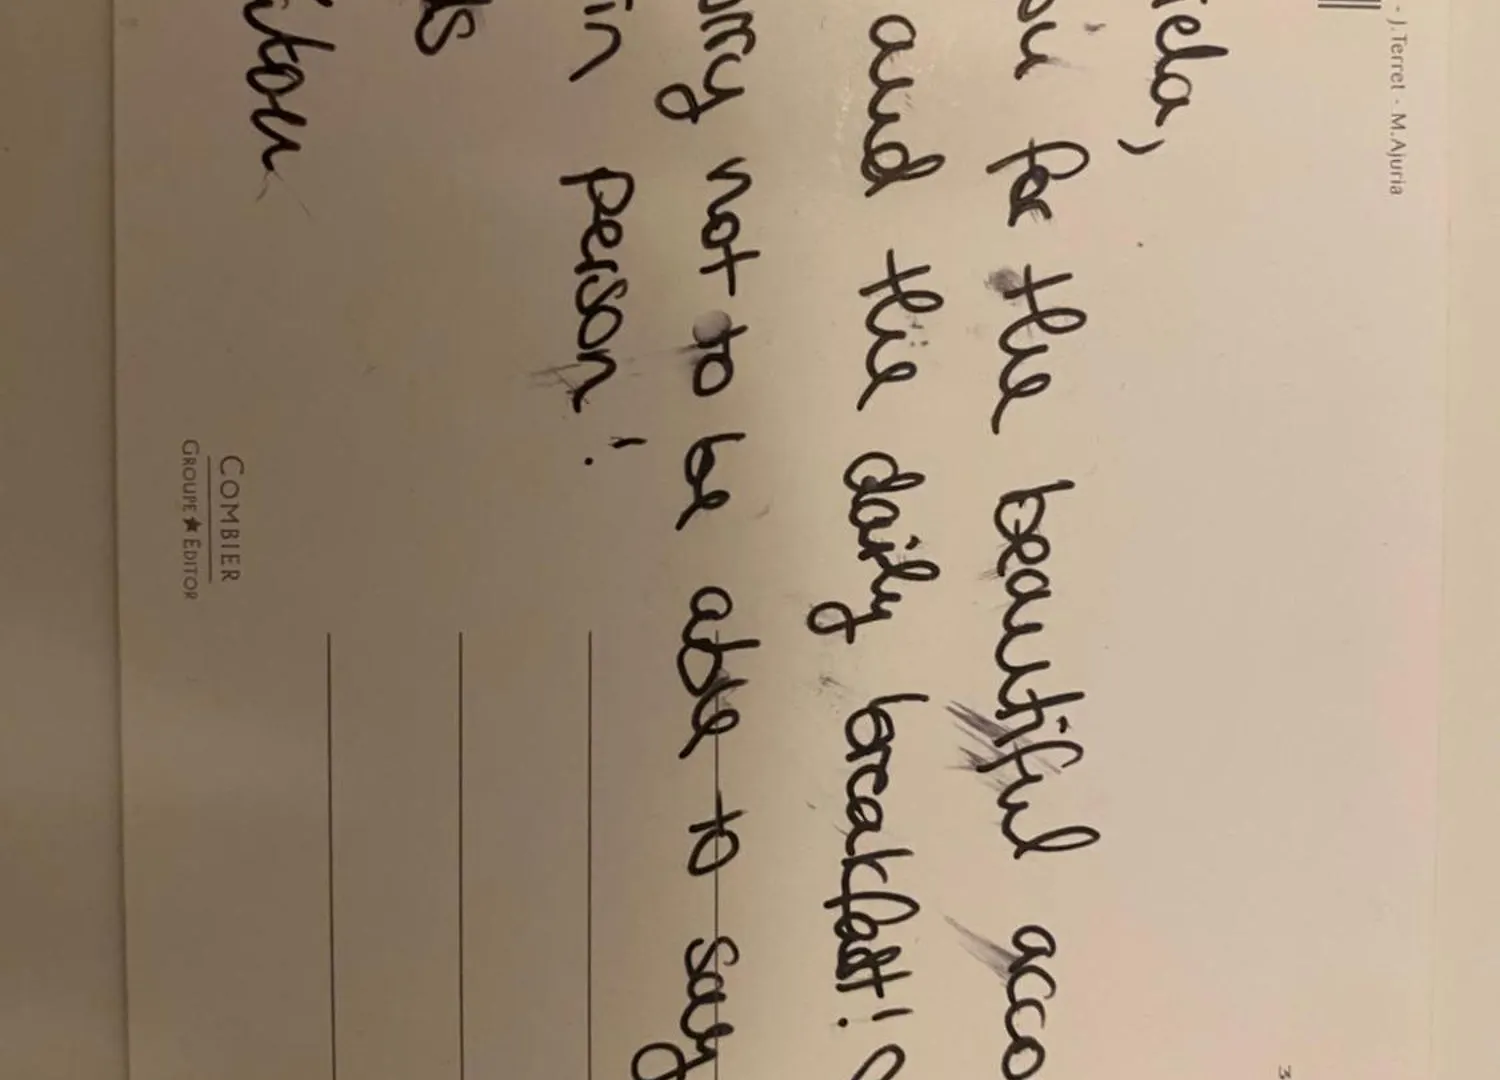 - J. Terret - M.Ajuria
iela,
for the beautiful acco
and the daily breakfast!
orry not to be able to say
in person!
ds
COMBIER
GROUPE ★ EDITOR
3